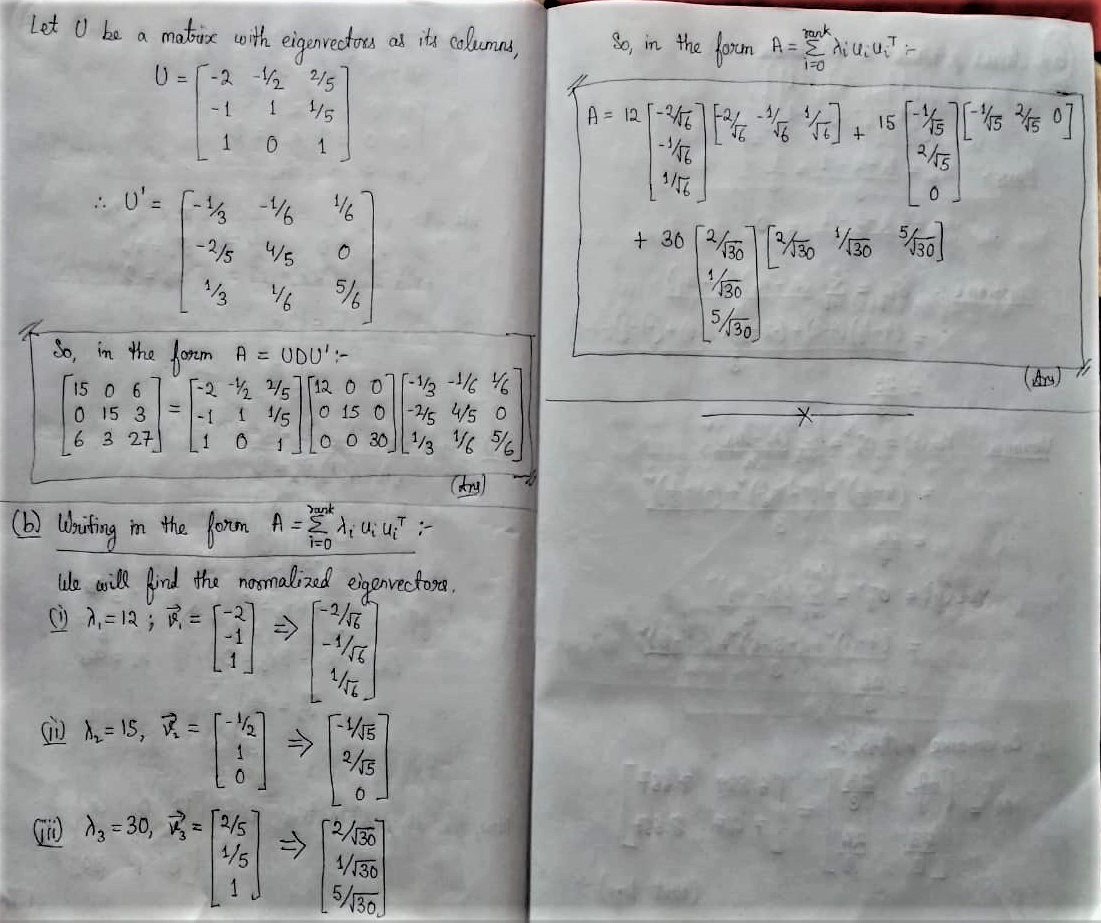 Let U be a matrix with eigenvectors as its columns,
U = [-2 -1/2 2/5
-1 1 1/5
1 0 1]
∴ U' = [-1/3 -1/6 1/6
-2/5 4/5 0
1/3 1/6 5/6]
So, in the form A = UDU' :-
[15 0 6 [-2 -1/2 2/5 [12 0 0 [-1/3 -1/6 1/6
0 15 3 = -1 1 1/5 0 15 0 -2/5 4/5 0
6 3 27] 1 0 1] 0 0 30] 1/3 1/6 5/6]
(Ans)
(b) Writing in the form A = rank Σ i=0 λi ui uiT :-
We will find the normalized eigenvectors.
(i) λ1 = 12 ; v1 = [-2 -1 1] ⇒ [-2/√6 -1/√6 1/√6]
(ii) λ2 = 15, v2 = [-1/2 1 0] ⇒ [-1/√5 2/√5 0]
(iii) λ3 = 30, v3 = [2/5 1/5 1] ⇒ [2/√30 1/√30 5/√30]
So, in the form A = rank Σ i=0 λi ui uiT :-
A = 12 [-2/√6 -1/√6 1/√6] [-2/√6 -1/√6 1/√6] + 15 [-1/√5 2/√5 0] [-1/√5 2/√5 0]
+ 30 [2/√30 1/√30 5/√30] [2/√30 1/√30 5/√30]
(Ans)